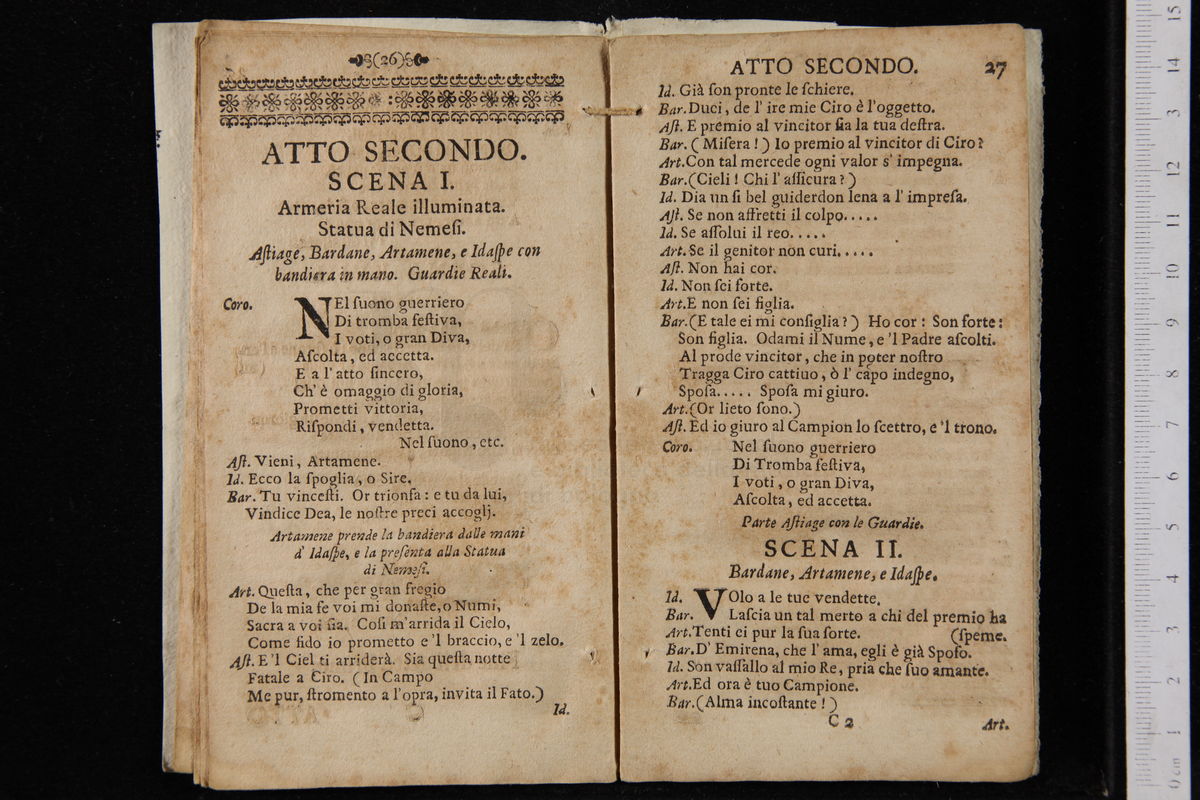 (26)
ATTO SECONDO.
SCENA I.
Armeria Reale illuminata.
Statua di Nemeſi.
Aſtiage, Bardane, Artamene, e Idaſpe con
bandiera in mano. Guardie Reali.
Coro. NEl ſuono guerriero
Di tromba feſtiva,
I voti, o gran Diva,
Aſcolta, ed accetta.
E a l' atto ſincero,
Ch' è omaggio di gloria,
Prometti vittoria,
Riſpondi, vendetta.
Nel ſuono, etc.
Aſt. Vieni, Artamene.
Id. Ecco la ſpoglia, o Sire.
Bar. Tu vinceſti. Or trionfa: e tu da lui,
Vindice Dea, le noſtre preci accoglj.
Artamene prende la bandiera dalle mani
d' Idaſpe, e la preſenta alla Statua
di Nemeſi.
Art. Queſta, che per gran fregio
De la mia fe voi mi donaſte, o Numi,
Sacra a voi ſia. Coſi m'arrida il Cielo,
Come fido io prometto e 'l braccio, e 'l zelo.
Aſt. E 'l Ciel ti arriderà. Sia queſta notte
Fatale a Ciro. (In Campo
Me pur, ſtromento a l'opra, invita il Fato.)
Id.
ATTO SECONDO. 27
Id. Già ſon pronte le ſchiere.
Bar. Duci, de l' ire mie Ciro è l'oggetto.
Aſt. E premio al vincitor ſia la tua deſtra.
Bar. (Miſera!) Io premio al vincitor di Ciro?
Art. Con tal mercede ogni valor s' impegna.
Bar. (Cieli! Chi l' aſſicura?)
Id. Dia un ſi bel guiderdon lena a l' impreſa.
Aſt. Se non affretti il colpo.....
Id. Se aſſolui il reo.....
Art. Se il genitor non curi.....
Aſt. Non hai cor.
Id. Non ſei forte.
Art. E non ſei figlia.
Bar. (E tale ei mi conſiglia?) Ho cor: Son forte:
Son figlia. Odami il Nume, e 'l Padre aſcolti.
Al prode vincitor, che in poter noſtro
Tragga Ciro cattiuo, ò l' capo indegno,
Spoſa..... Spoſa mi giuro.
Art. (Or lieto ſono.)
Aſt. Ed io giuro al Campion lo ſcettro, e 'l trono.
Coro. Nel ſuono guerriero
Di Tromba feſtiva,
I voti, o gran Diva,
Aſcolta, ed accetta.
Parte Aſtiage con le Guardie.
SCENA II.
Bardane, Artamene, e Idaſpe.
Id. VOlo a le tue vendette.
Bar. Laſcia un tal merto a chi del premio ha
Art. Tenti ei pur la ſua ſorte. (ſpeme.
Bar. D' Emirena, che l' ama, egli è già Spoſo.
Id. Son vaſſallo al mio Re, pria che ſuo amante.
Art. Ed ora è tuo Campione.
Bar. (Alma incoſtante!)
C 2 Art.